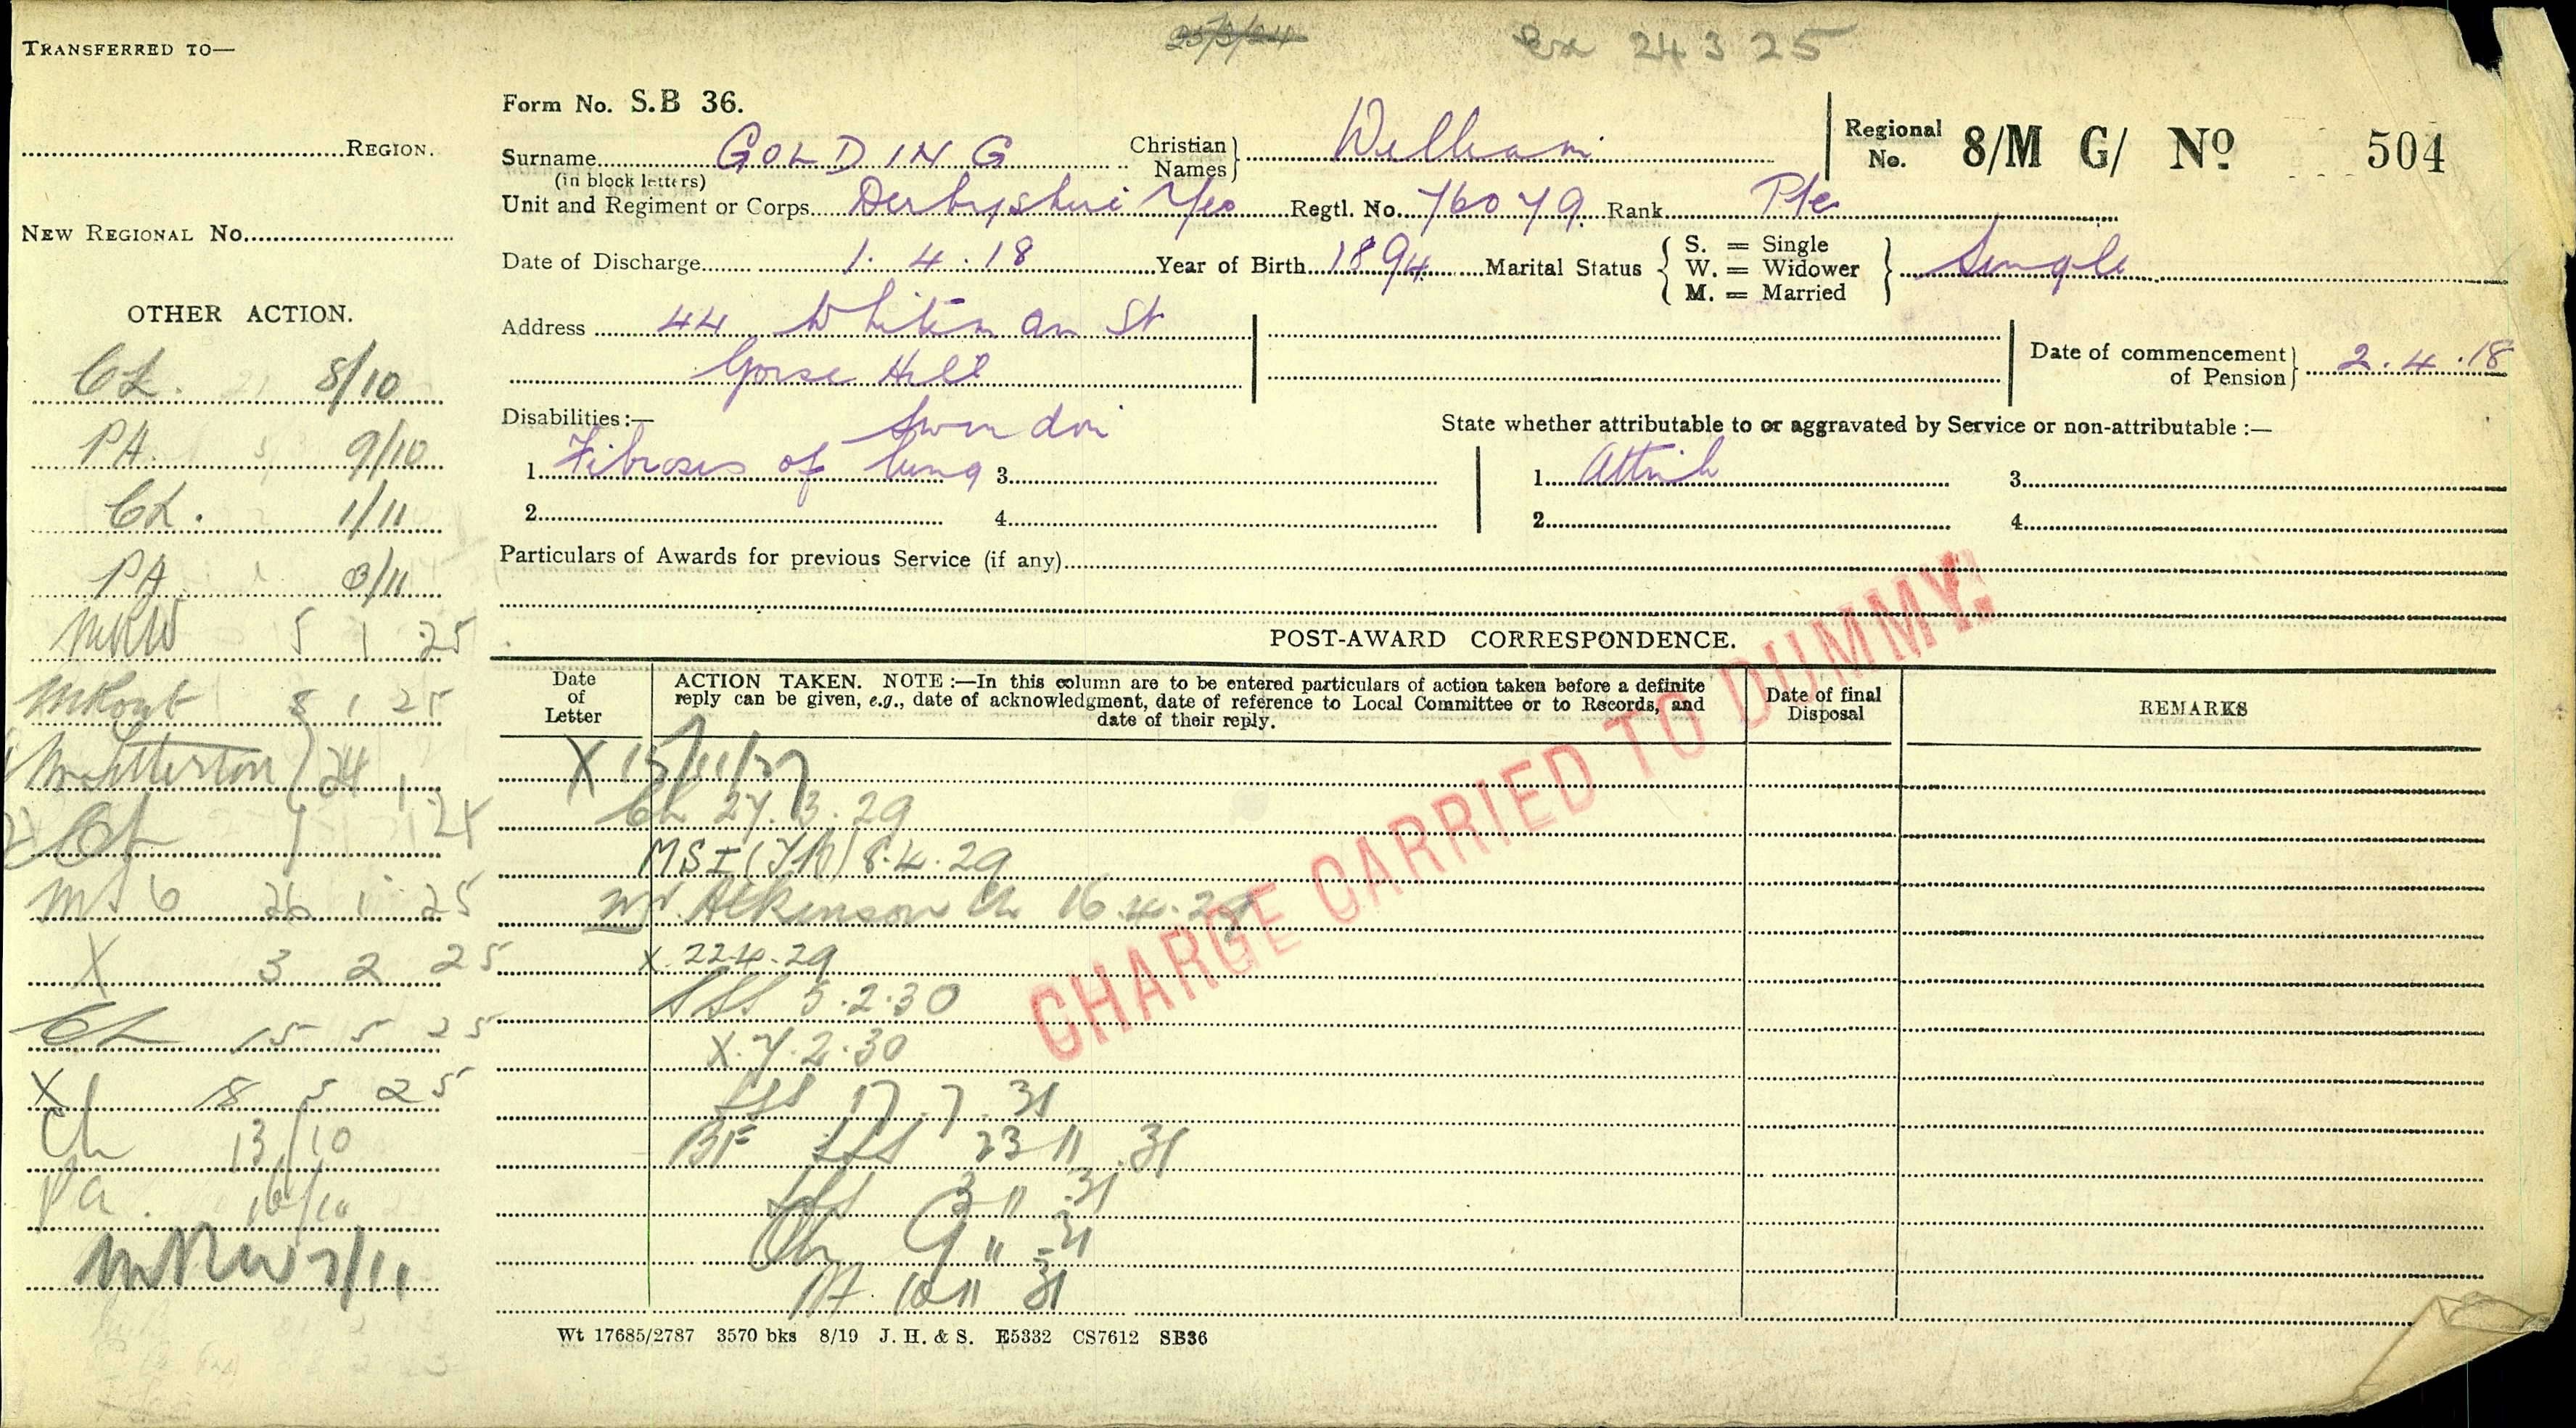 TRANSFERRED TO—
REGION.
NEW REGIONAL No.
OTHER ACTION.
CL. 8/10
PA. 9/10
CL. 1/11
PA 3/11
MRW 5 1 25
8 1 25
24 1 25
26 1 25
X 3 2 25
CL 15 5 25
X 18 5 25
Ch 13/10
Pa. 16/10
MRW 7/11
25/3/24
Ex 24 3 25
Form No. S.B 36.
Surname GOLDING Christian Names} William
(in block letters)
Regional No. 8/M G/ No 504
Unit and Regiment or Corps Derbyshire Yeo Regtl. No. 76079 Rank Pte
Date of Discharge 1.4.18 Year of Birth 1894 Marital Status { S. = Single W. = Widower M. = Married } Single
Address 44 Whiteman St
Gorse Hill
Swindon
Date of commencement of Pension} 2.4.18
Disabilities :—
State whether attributable to or aggravated by Service or non-attributable :—
1. Fibrosis of lung 3. 1. Attrib 3.
2. 4. 2. 4.
Particulars of Awards for previous Service (if any)
POST-AWARD CORRESPONDENCE.
Date of Letter
ACTION TAKEN. NOTE :—In this column are to be entered particulars of action taken before a definite
reply can be given, e.g., date of acknowledgment, date of reference to Local Committee or to Records, and
date of their reply.
Date of final Disposal
REMARKS
X 15/11/27
Ch 27.3.29
MSI 8.4.29
Mr. Atkinson Ch 16.4.29
X 22.4.29
5.2.30
X.7.2.30
17.7.31
BF 23 11 31
3 11 31
Ch 9 11 31
10 11 31
CHARGE CARRIED TO DUMMY.
Wt 17685/2787 3570 bks 8/19 J. H. & S. E5332 CS7612 SB36